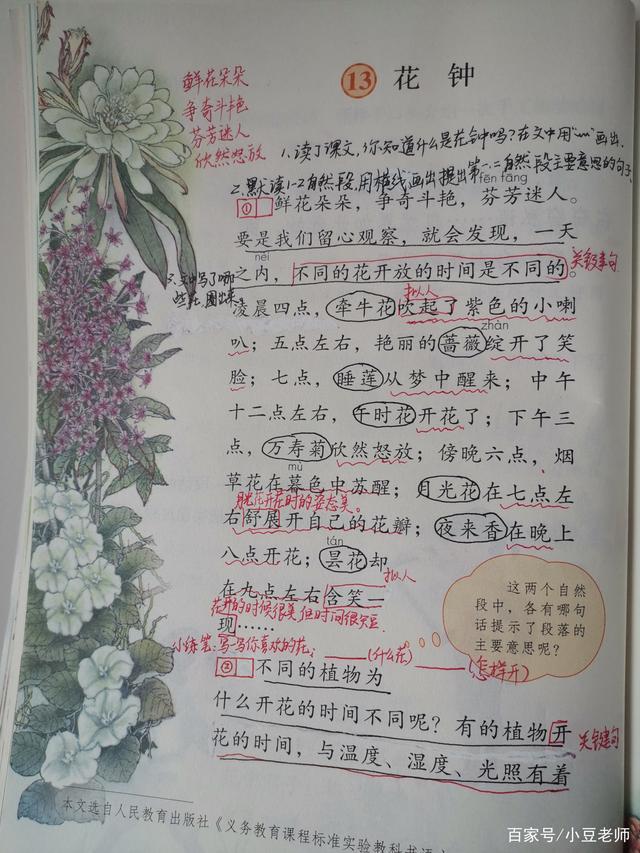 13 花钟
鲜花朵朵
争奇斗艳
芬芳迷人
欣然怒放
1.读了课文,你知道什么是花钟吗?在文中用“﹏”画出.
2.默读1-2自然段,用横线画出提出第一、二自然段主要意思的句子.
fēn fāng
① 鲜花朵朵,争奇斗艳,芬芳迷人。
要是我们留心观察,就会发现,一天
nèi
之内,不同的花开放的时间是不同的。
关键句
3.文中写了哪
些花,圈出来
拟人
凌晨四点,牵牛花吹起了紫色的小喇
zhàn
叭;五点左右,艳丽的蔷薇绽开了笑
脸;七点,睡莲从梦中醒来;中午
十二点左右,午时花开花了;下午三
点,万寿菊欣然怒放;傍晚六点,烟
mù
草花在暮色中苏醒;月光花在七点左
月光花开花时的姿态美。
右舒展开自己的花瓣;夜来香在晚上
tán
八点开花;昙花却
拟人
在九点左右含笑一
花开的时候很美但时间很短
现……
小练笔:写一写你喜欢的花。
(什么花)
(怎样开)
这两个自然
段中,各有哪句
话提示了段落的
主要意思呢?
② 不同的植物为
什么开花的时间不同呢?有的植物开
关键句
花的时间,与温度、湿度、光照有着
本文选自人民教育出版社《义务教育课程标准实验教科书
百家号/小豆老师